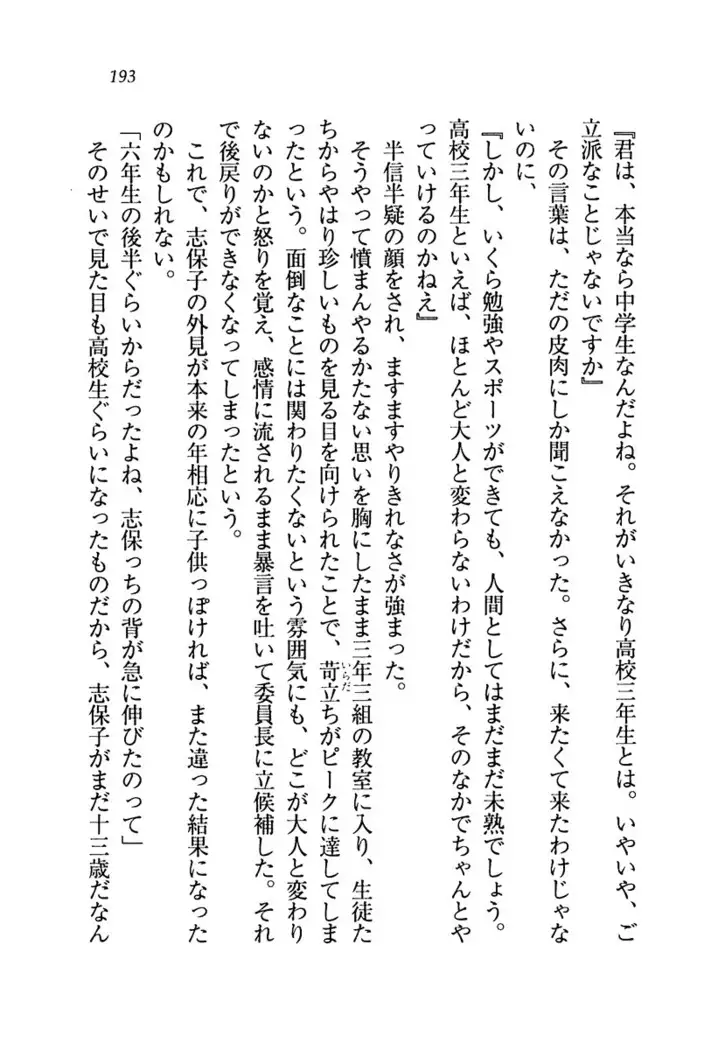 193
『君は、本当なら中学生なんだよね。それがいきなり高校三年生とは。いやいや、ご
立派なことじゃないですか』
その言葉は、ただの皮肉にしか聞こえなかった。さらに、来たくて来たわけじゃな
いのに、
『しかし、いくら勉強やスポーツができても、人間としてはまだまだ未熟でしょう。
高校三年生といえば、ほとんど大人と変わらないわけだから、そのなかでちゃんとや
っていけるのかねえ』
半信半疑の顔をされ、ますますやりきれなさが強まった。
そうやって憤まんやるかたない思いを胸にしたまま三年三組の教室に入り、生徒た
ちからやはり珍しいものを見る目を向けられたことで、苛立ちがピークに達してしま
いらだ
ったという。面倒なことには関わりたくないという雰囲気にも、どこが大人と変わり
ないのかと怒りを覚え、感情に流されるまま暴言を吐いて委員長に立候補した。それ
で後戻りができなくなってしまったという。
これで、志保子の外見が本来の年相応に子供っぽければ、また違った結果になった
のかもしれない。
「六年生の後半ぐらいからだったよね、志保っちの背が急に伸びたのって」
そのせいで見た目も高校生ぐらいになったものだから、志保子がまだ十三歳だなん